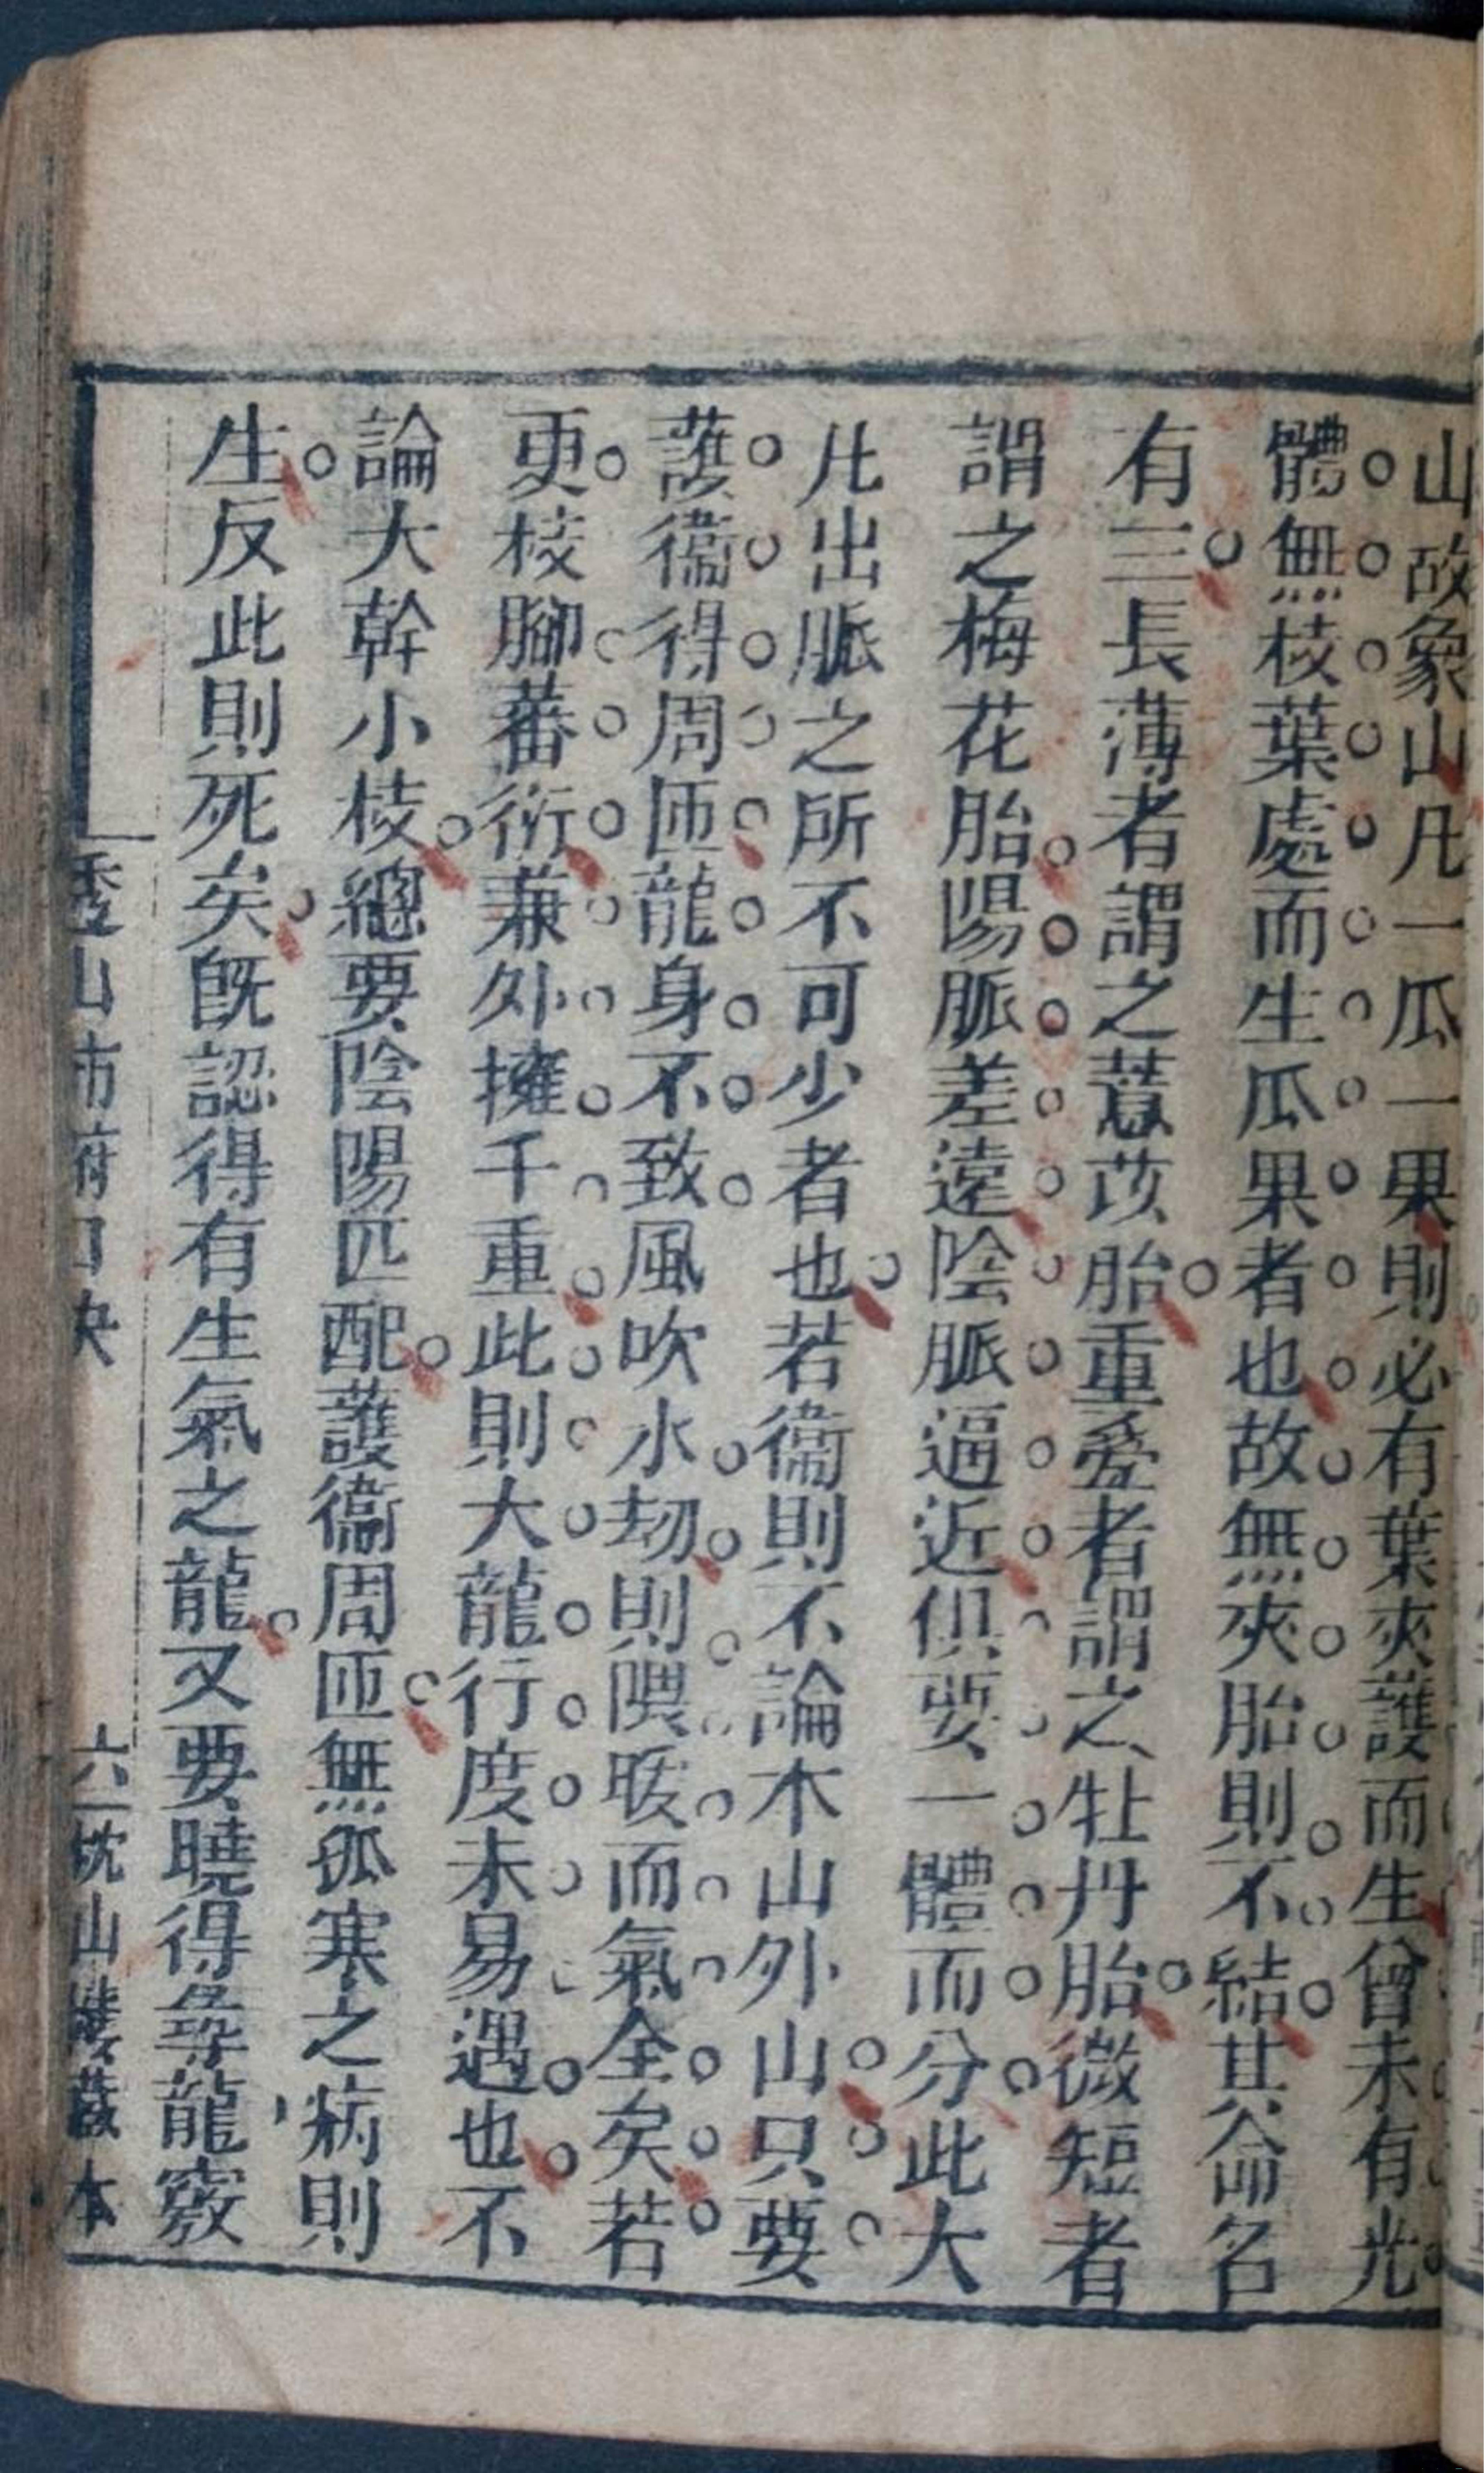 山故象山凡一瓜一果則必有葉夾護而生曾未有光
體無枝葉處而生瓜果者也故無夾胎則不結其命名
有三長薄者謂之薏苡胎重疊者謂之牡丹胎微短者
謂之梅花胎陽脈差遠陰脈逼近俱要一體而分此大
凡出脈之所不可少者也若衞則不論木山外山只要
護衞得周匝龍身不致風吹水刼則隈暖而氣全矣若
更枝腳蕃衍兼外擁千重此則大龍行度未易遇也不
論大幹小枝總要陰陽匹配護衞周匝無孤寒之病則
生反此則死矣旣認得有生氣之龍又要曉得尋龍竅
山 市 口
六 枕山樓藏本